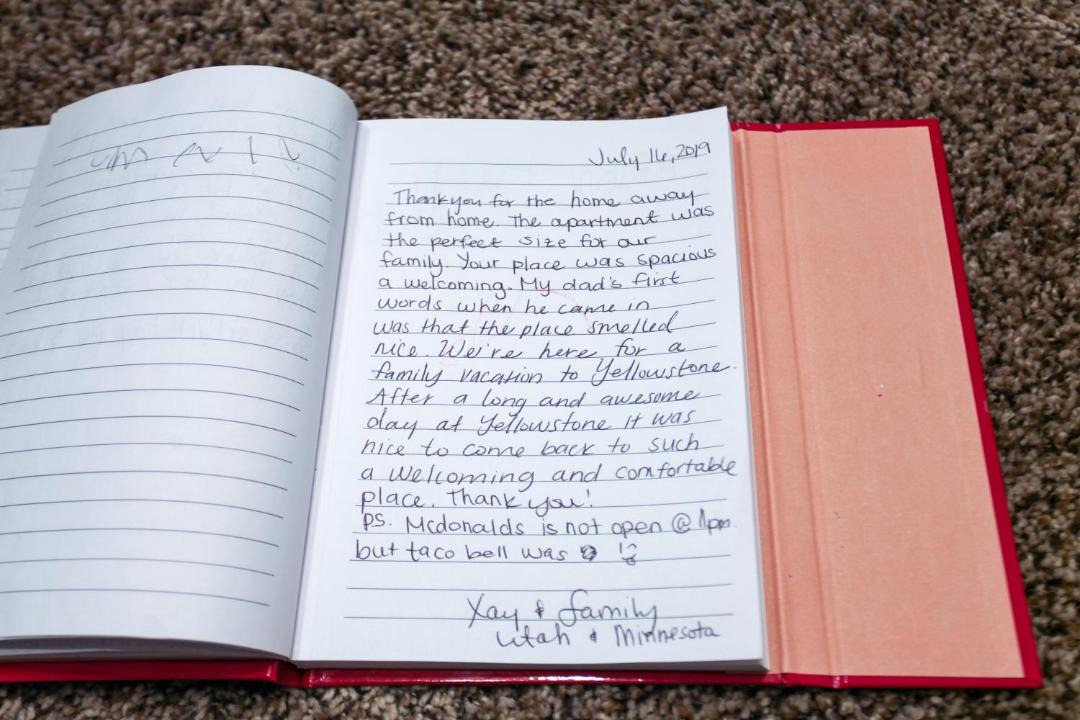 July 16, 2019
Thankyou for the home away
from home. The apartment was
the perfect size for our
family. Your place was spacious
a welcoming. My dad's first
words when he came in
was that the place smelled
nice. We're here for a
family vacation to Yellowstone.
After a long and awesome
day at Yellowstone it was
nice to come back to such
a welcoming and comfortable
place. Thank you!
ps. Mcdonalds is not open @
but taco bell was
Xay & family
Utah & Minnesota